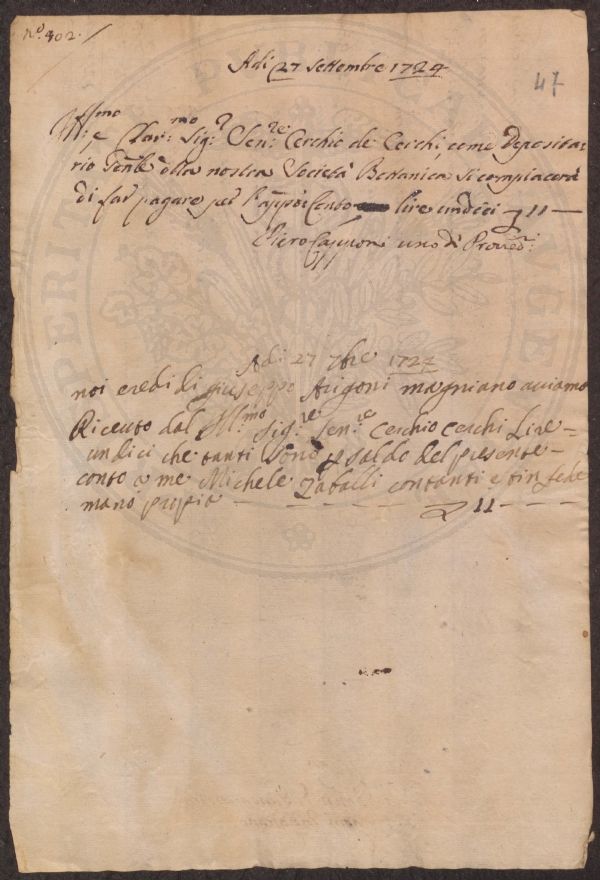 nº. 402.
Adi 27 settembre 1724
47
Ill:mo e Clar:mo Sig:r Sen:re Cerchio de Cerchi, come Deposita:
rio Gen:le della nostra Società Bottanica si compiacerà
di far pagare pel lire undici 11
Piero Capponi uno di Proved:i
Adi 27 7bre 1724
noi eredi di giuseppo Arigoni magniano aviamo
Riceuto dal Ill:mo sig:re sen:re Cerchio Cerchi Lire
undici che tanti sono p saldo del presente
conto a me Michele contanti e in fede
mano propia 11